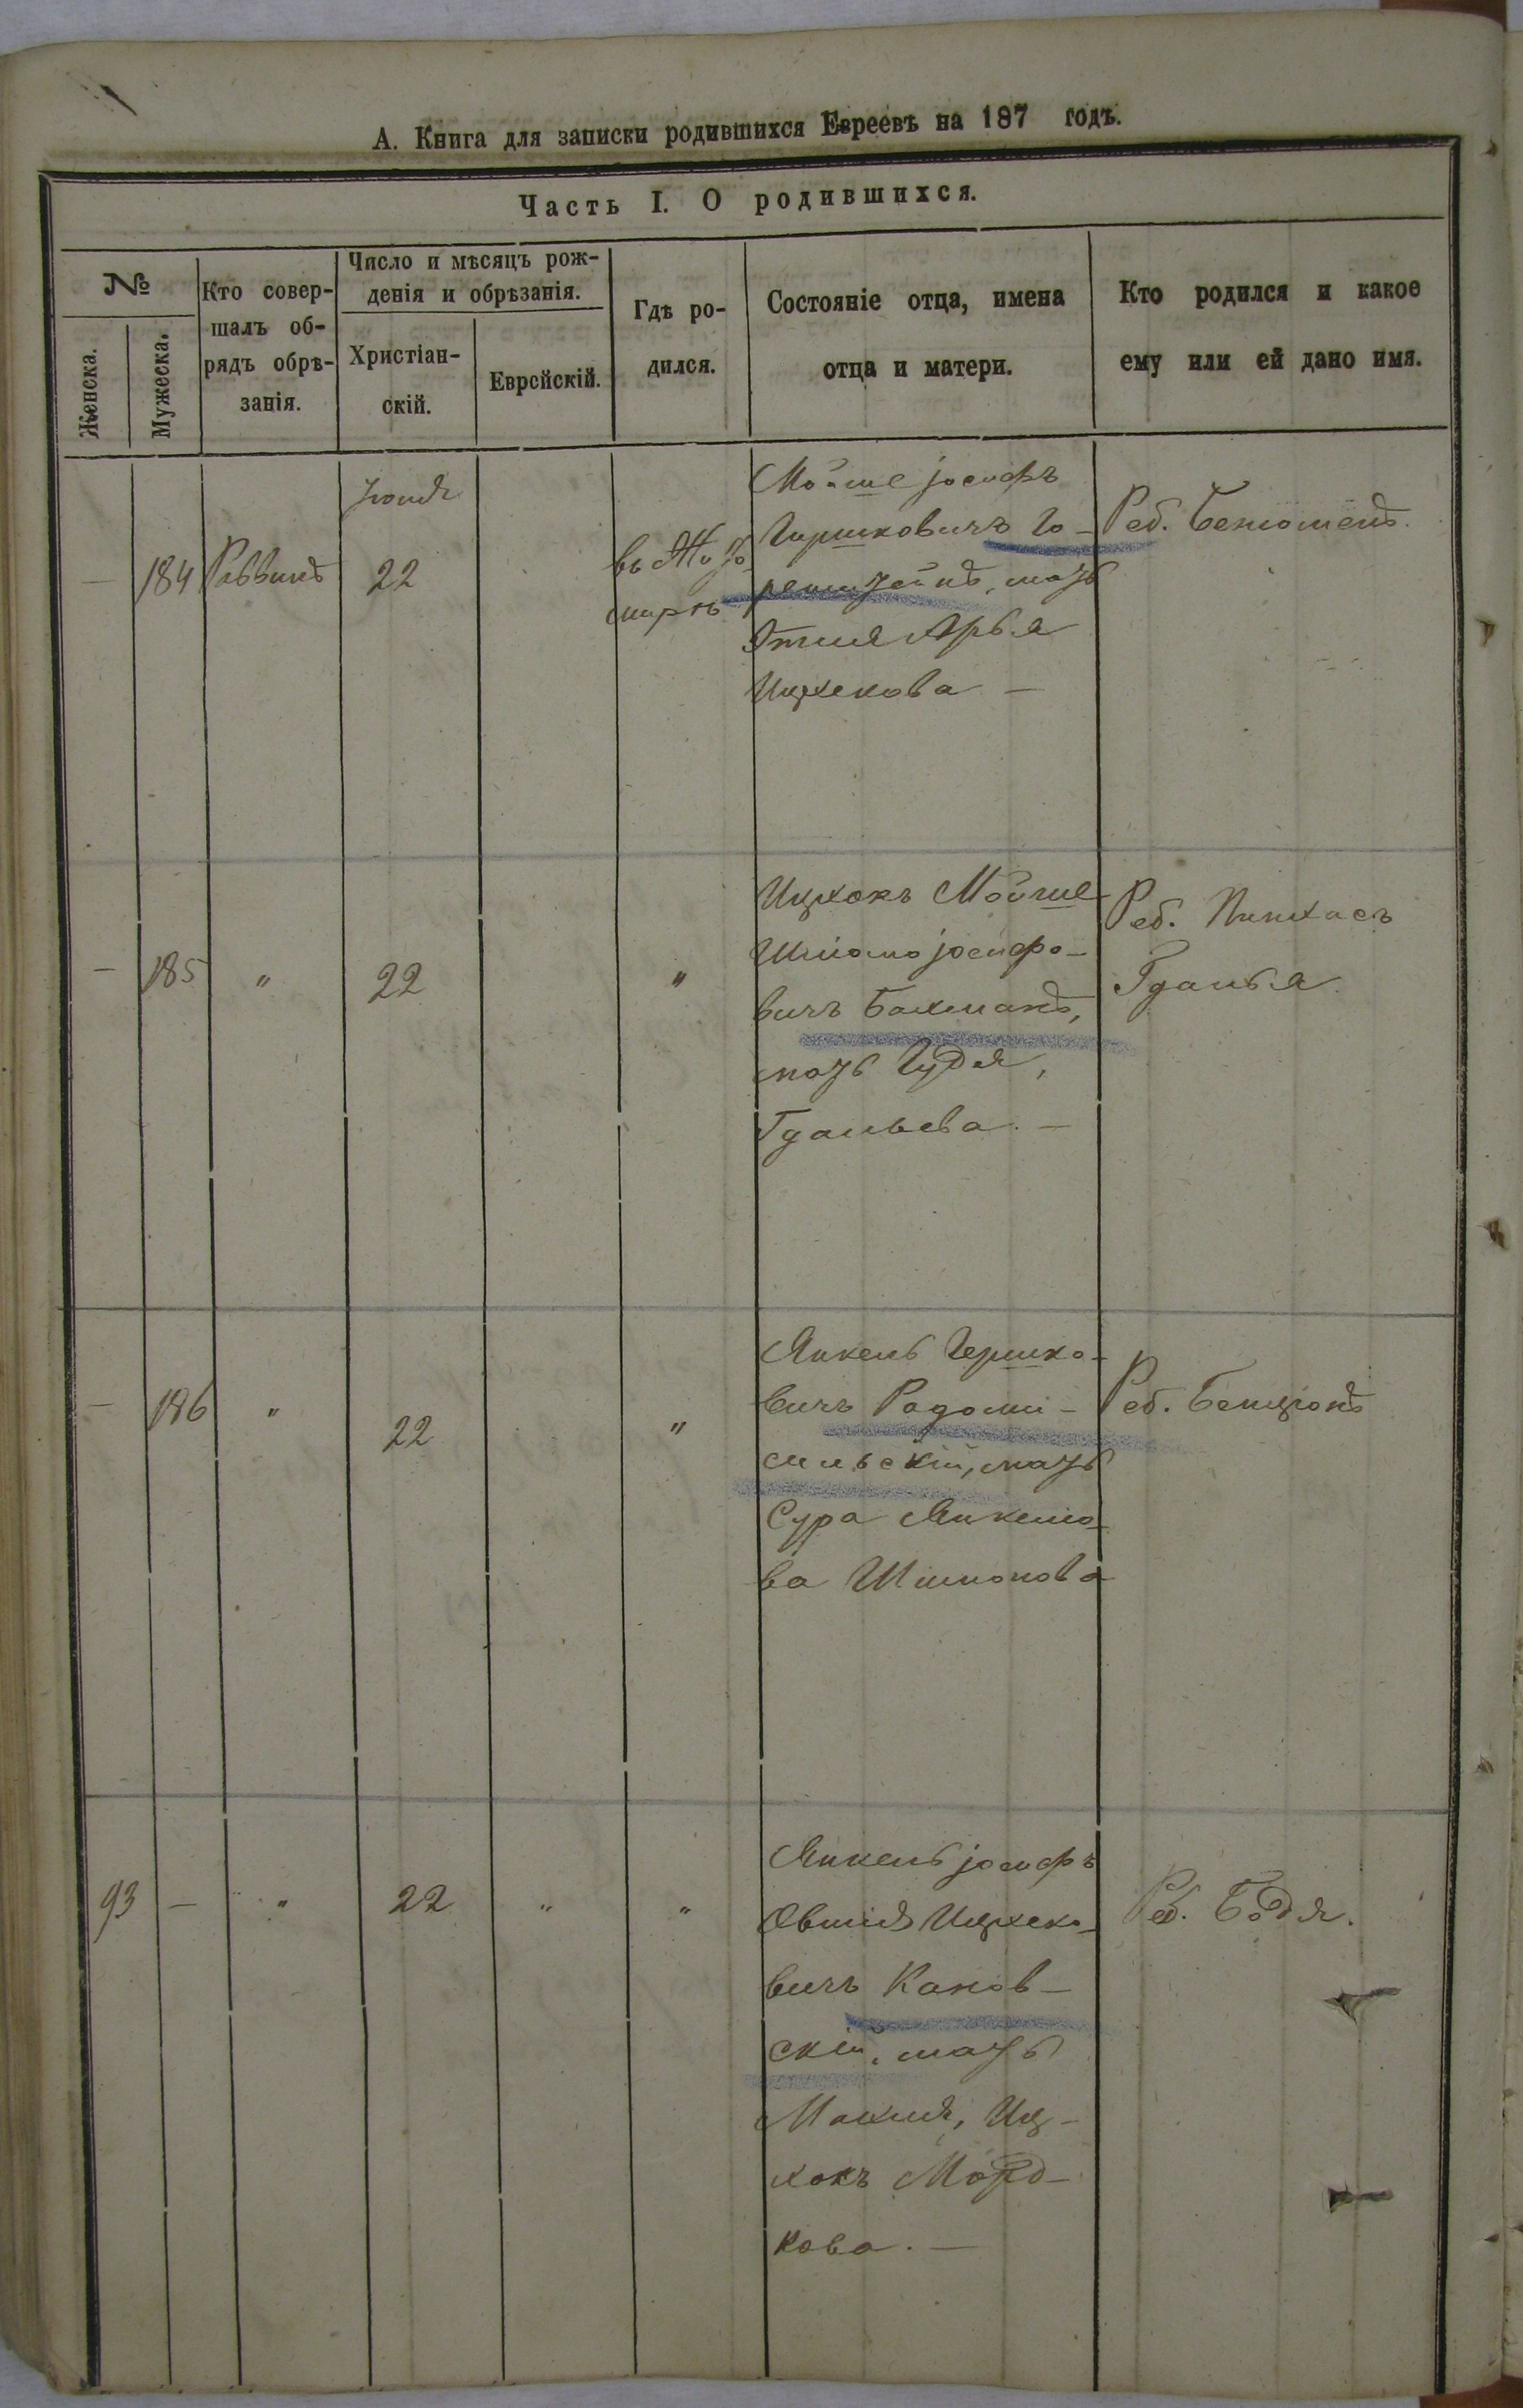 А. Книга для записки родившихся Евреевъ на 187 годъ.
Часть I. О родившихся.
№
Женска.
Мужеска.
Кто совер-
шалъ об-
рядъ обрѣ-
занія.
Число и мѣсяцъ рож-
денія и обрѣзанія.
Христіан-
скій.
Еврейскій.
Гдѣ ро-
дился.
Состояніе отца, имена
отца и матери.
Кто родился и какое
ему или ей дано имя.
— 184 Раввинъ
Іюня
22
въ Жито
мирѣ
Мойше Іосифъ
Гершковичъ Го-
ренштейнъ, мать
Этля Арья
Ицхекова —
Реб. Беніоменъ.
— 185 " 22 "
Ицхокъ Мойше
Шліомо Іосифо-
вичъ Бахманъ,
мать Гудя,
Гдальева. —
Реб. Пинхасъ
Гдалья.
— 186 " 22 "
Янкель Гершко-
вичъ Радоми-
сльскій, мать
Сура Янкело-
ва Шимонова
Реб. Бенціонъ
93 — " 22 " "
Янкель Іосифъ
Овшія Ицхеко-
вичъ Канов-
скій, мать
Махля, Иц-
хокъМорд-
кова. —
Реб. Бодя.